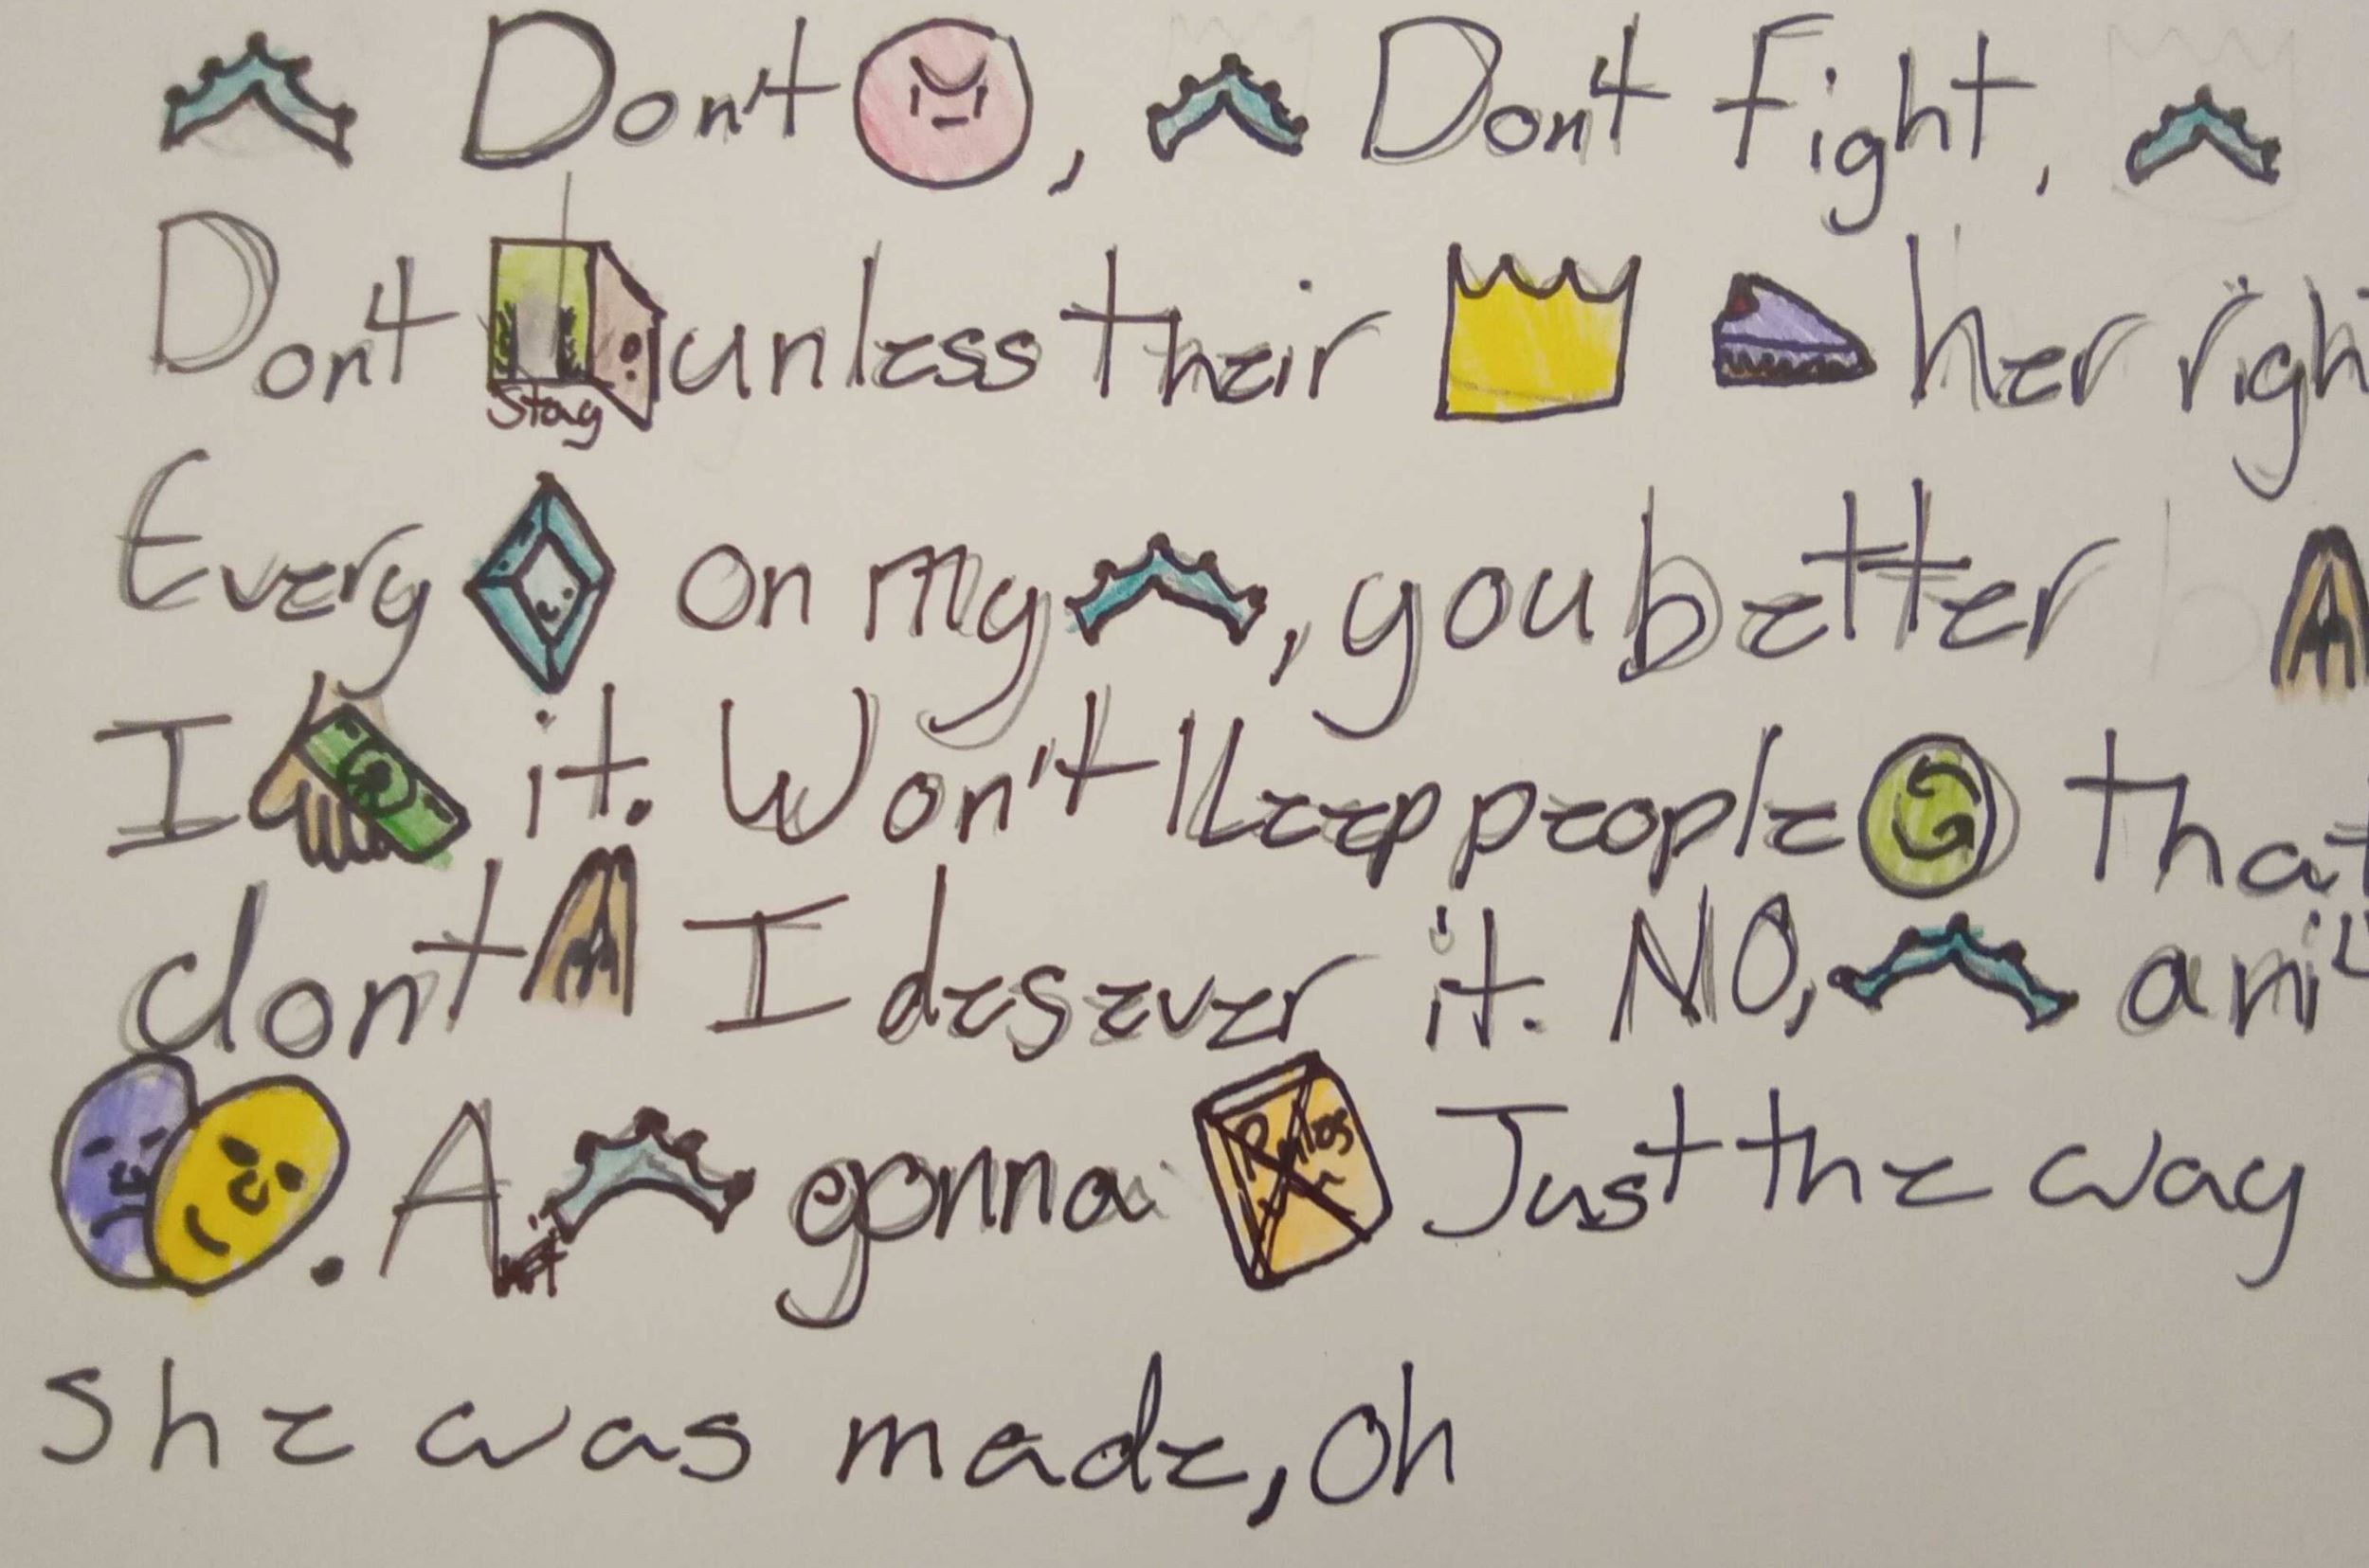 Don't , Dont fight,
Dont Stay unless their her righ
Every on my , you better
I it. Won't keep people that
dont I desever it. NO, ani
. A gonna Rules Just the way
she was made, Oh